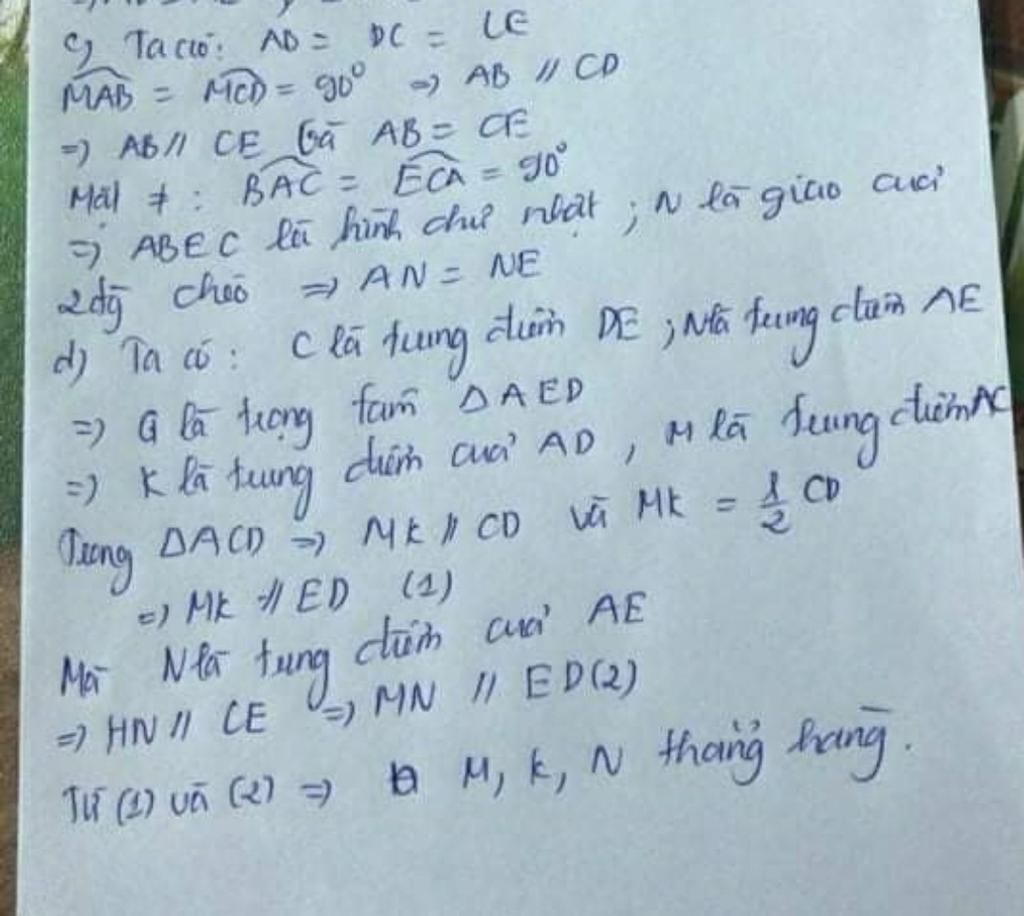 c) Ta có: AD = DC = CE
MAB = MCD = 90° => AB // CD
=> AB // CE và AB = CE
Mặt ≠ : BAC = ECA = 90°
=> ABEC là hình chữ nhật ; N là giao của
2 đg chéo => AN = NE
d) Ta có : C là trung điểm DE ; N là trung điểm AE
=> G là trọng tâm ΔAED
=> K là trung điểm của AD , M là trung điểm AC
Trong ΔACD => MK // CD và MK = 1/2 CD
=> MK // ED (1)
Mà N là trung điểm của AE
=> HN // CE => MN // ED (2)
Từ (1) và (2) => M, K, N thẳng hàng.